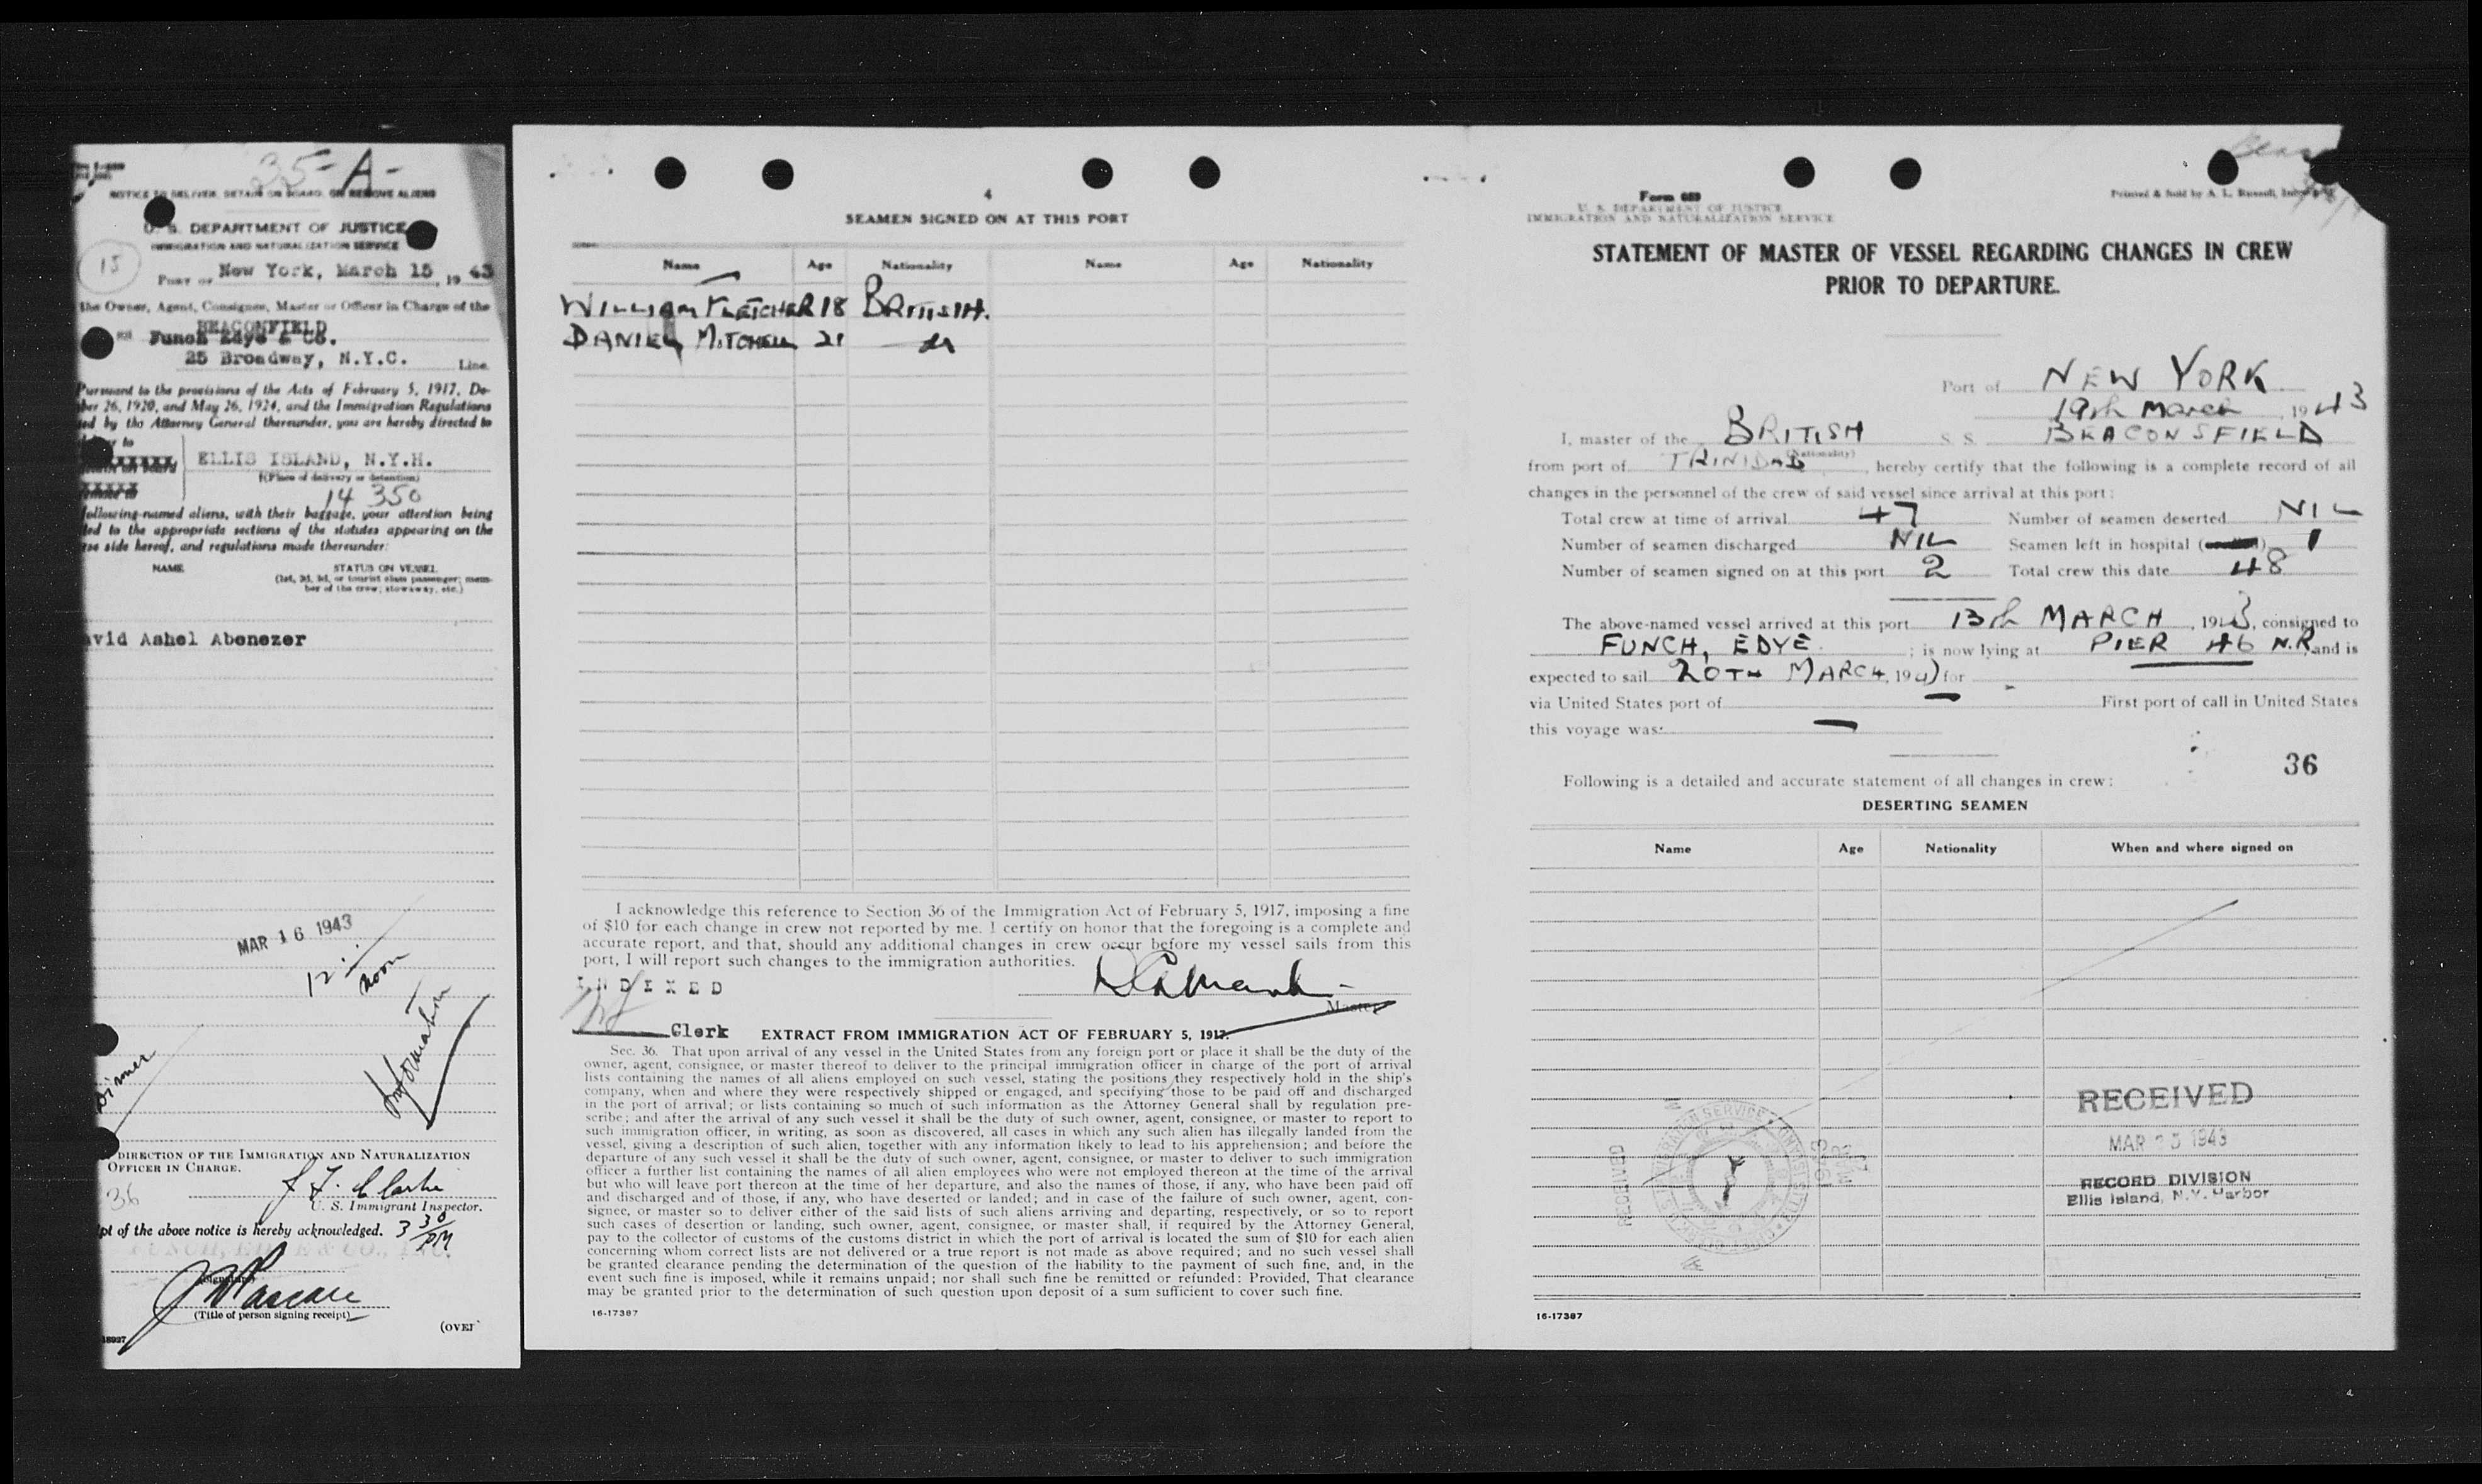 35-A-
NOTICE TO DELIVER, DETAIN ON BOARD, OR REMOVE ALIENS
U. S. DEPARTMENT OF JUSTICE
IMMIGRATION AND NATURALIZATION SERVICE
15
PORT OF New York, March 15, 1943
the Owner, Agent, Consignee, Master or Officer in Charge of the
BEACONFIELD
Funch Edye & Co.
25 Broadway, N.Y.C. Line.
Pursuant to the provisions of the Acts of February 5, 1917, De-
ber 26, 1920, and May 26, 1924, and the Immigration Regulations
ed by the Attorney General thereunder, you are hereby directed to
to
ELLIS ISLAND, N.Y.H.
(Place of delivery or detention)
14 350
ollowing-named aliens, with their baggage, your attention being
ted to the appropriate sections of the statutes appearing on the
rse side hereof, and regulations made thereunder:
NAME STATUS ON VESSEL
(1st, 2d, 3d, or tourist class passenger; mem-
ber of the crew; stowaway, etc.)
avid Ashel Abenezer
MAR 16 1943
12 noon
Information
DIRECTION OF THE IMMIGRATION AND NATURALIZATION
OFFICER IN CHARGE.
36
U. S. Immigrant Inspector.
pt of the above notice is hereby acknowledged. 3 30 PM
FUNCH, EDYE & CO., INC.
(Signature)
(Title of person signing receipt)
18927
(OVER
4
SEAMEN SIGNED ON AT THIS PORT
Name Age Nationality Name Age Nationality
WILLIAM FLETCHER 18 BRITISH.
DANIEL MITCHELL 21
I acknowledge this reference to Section 36 of the Immigration Act of February 5, 1917, imposing a fine
of $10 for each change in crew not reported by me. I certify on honor that the foregoing is a complete and
accurate report, and that, should any additional changes in crew occur before my vessel sails from this
port, I will report such changes to the immigration authorities.
INDEXED
Master
Clerk
EXTRACT FROM IMMIGRATION ACT OF FEBRUARY 5, 1917.
Sec. 36. That upon arrival of any vessel in the United States from any foreign port or place it shall be the duty of the
owner, agent, consignee, or master thereof to deliver to the principal immigration officer in charge of the port of arrival
lists containing the names of all aliens employed on such vessel, stating the positions they respectively hold in the ship's
company, when and where they were respectively shipped or engaged, and specifying those to be paid off and discharged
in the port of arrival; or lists containing so much of such information as the Attorney General shall by regulation pre-
scribe; and after the arrival of any such vessel it shall be the duty of such owner, agent, consignee, or master to report to
such immigration officer, in writing, as soon as discovered, all cases in which any such alien has illegally landed from the
vessel, giving a description of such alien, together with any information likely to lead to his apprehension; and before the
departure of any such vessel it shall be the duty of such owner, agent, consignee, or master to deliver to such immigration
officer a further list containing the names of all alien employees who were not employed thereon at the time of the arrival
but who will leave port thereon at the time of her departure, and also the names of those, if any, who have been paid off
and discharged and of those, if any, who have deserted or landed; and in case of the failure of such owner, agent, con-
signee, or master so to deliver either of the said lists of such aliens arriving and departing, respectively, or so to report
such cases of desertion or landing, such owner, agent, consignee, or master shall, if required by the Attorney General,
pay to the collector of customs of the customs district in which the port of arrival is located the sum of $10 for each alien
concerning whom correct lists are not delivered or a true report is not made as above required; and no such vessel shall
be granted clearance pending the determination of the question of the liability to the payment of such fine, and, in the
event such fine is imposed, while it remains unpaid; nor shall such fine be remitted or refunded: Provided, That clearance
may be granted prior to the determination of such question upon deposit of a sum sufficient to cover such fine.
16-17387
Form 689
U. S. DEPARTMENT OF JUSTICE
IMMIGRATION AND NATURALIZATION SERVICE
Printed & Sold by A. L. Russell, Inc.
STATEMENT OF MASTER OF VESSEL REGARDING CHANGES IN CREW
PRIOR TO DEPARTURE.
Port of NEW YORK
19th March, 1943
I, master of the BRITISH S. S. BEACONSFIELD
(Nationality)
from port of TRINIDAD, hereby certify that the following is a complete record of all
changes in the personnel of the crew of said vessel since arrival at this port:
Total crew at time of arrival 47 Number of seamen deserted NIL
Number of seamen discharged NIL Seamen left in hospital 1
Number of seamen signed on at this port 2 Total crew this date 48
The above-named vessel arrived at this port 13th MARCH, 1943, consigned to
FUNCH, EDYE; is now lying at PIER 46 N.R. and is
expected to sail 20TH MARCH, 1943 for -
via United States port of — First port of call in United States
this voyage was: —
36
Following is a detailed and accurate statement of all changes in crew:
DESERTING SEAMEN
Name Age Nationality When and where signed on
RECEIVED
MAR 25 1943
RECORD DIVISION
Ellis Island, N.Y. Harbor
RECEIVED
16-17387